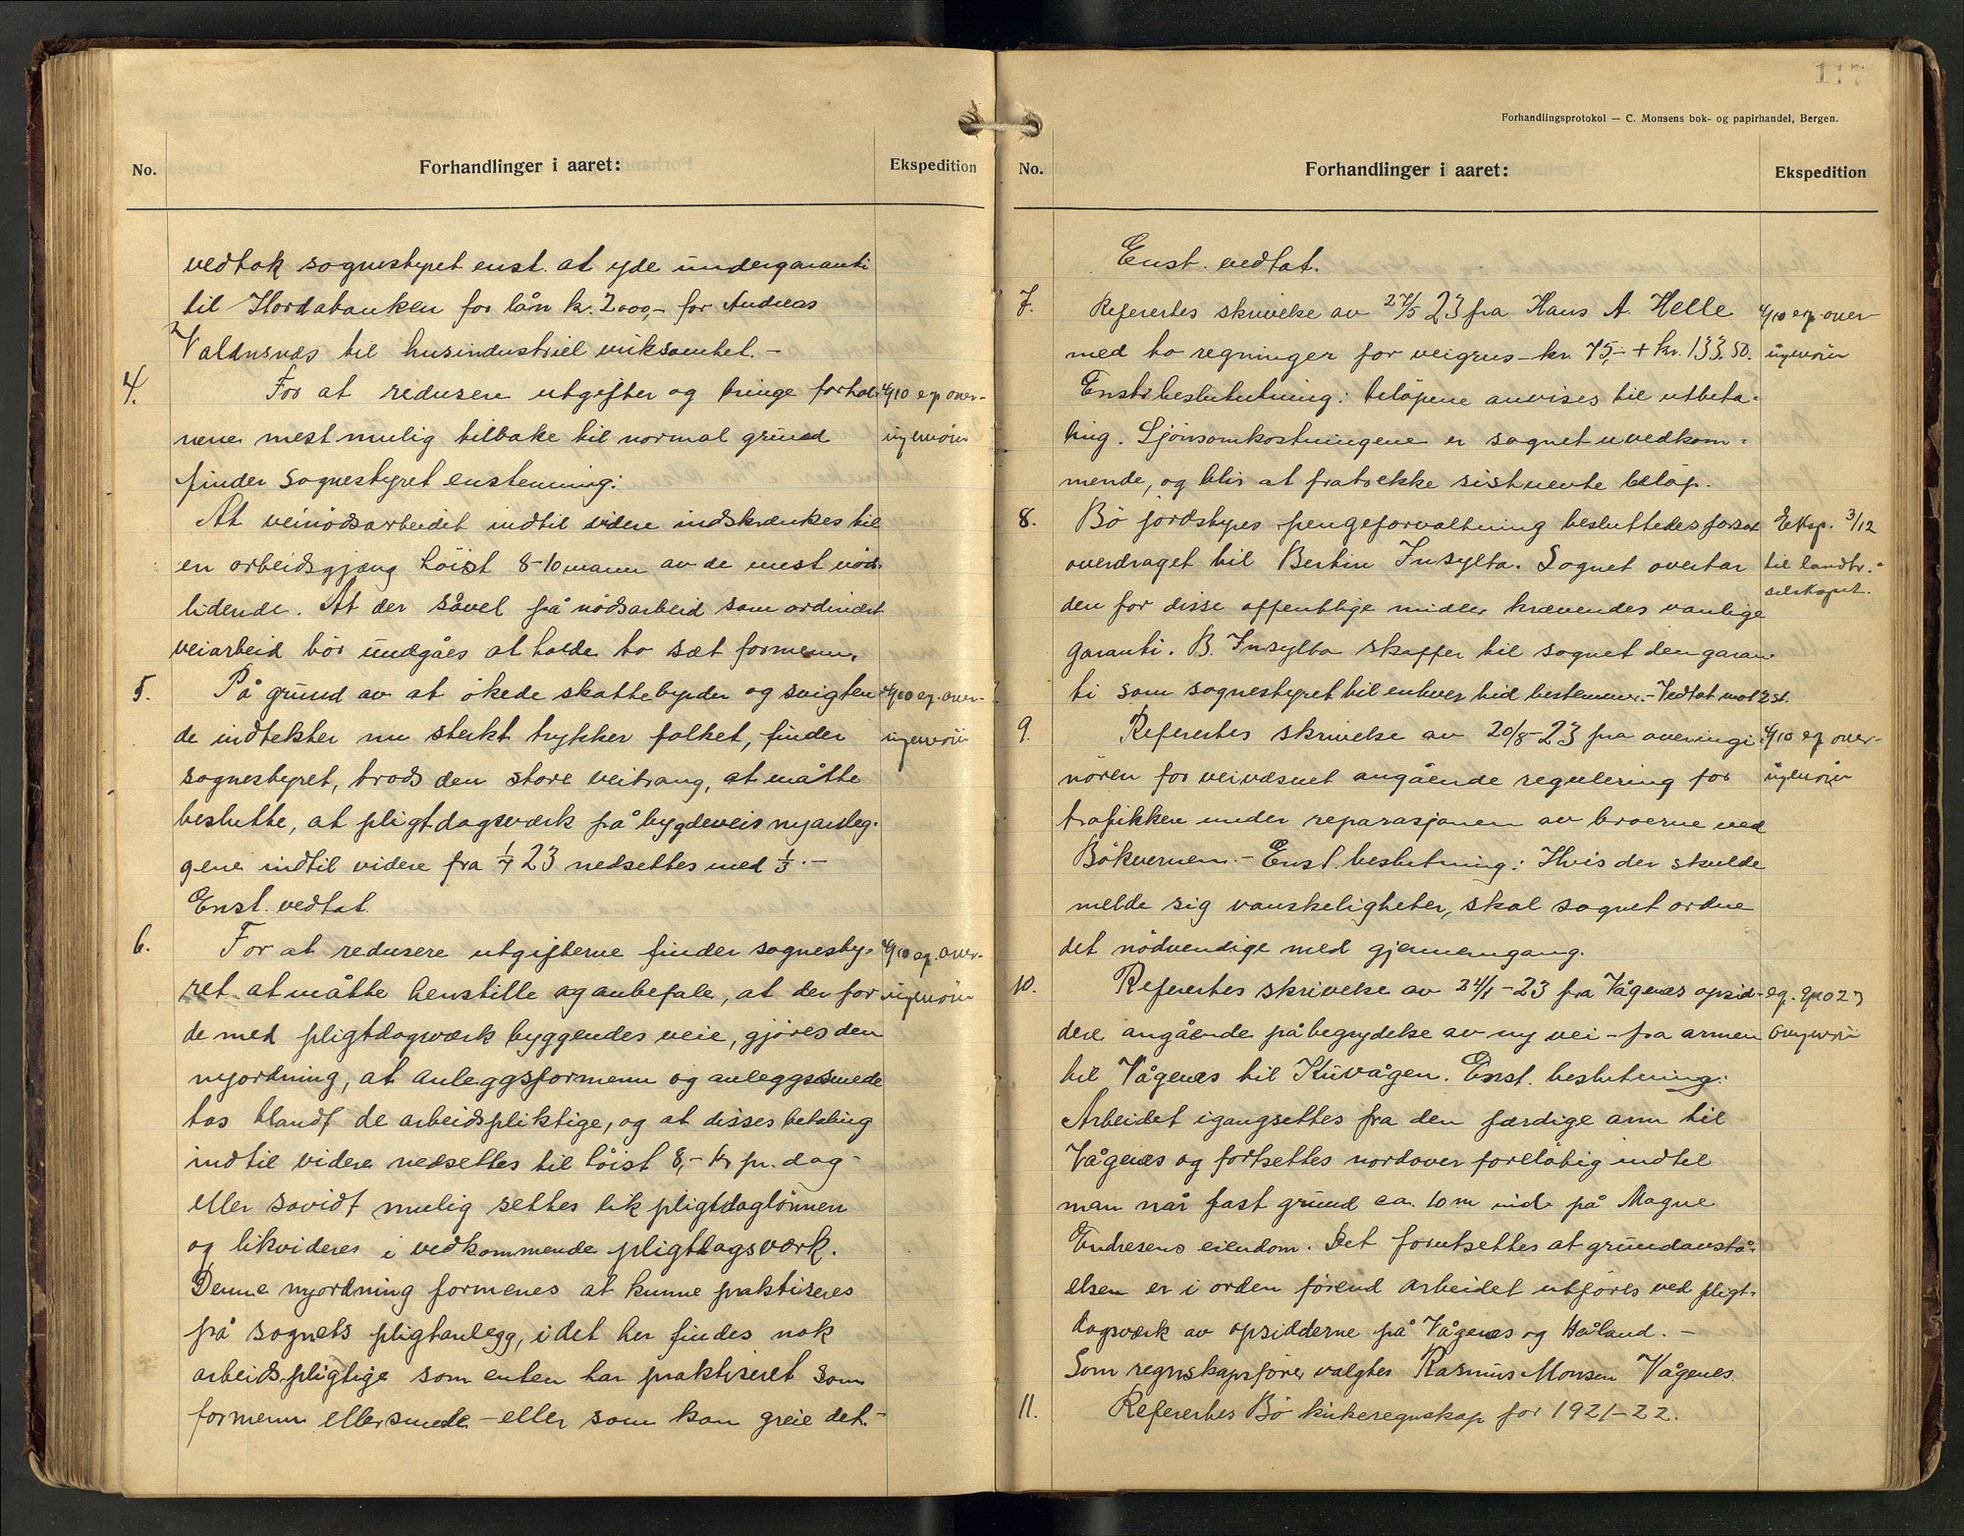 No.
Forhandlinger i aaret:
Ekspedition
vedtok sognestyret enst. at yde undergaranti
til Hordabanken for lån kr. 2000,- for Andreas
Valdersnæs til husindustriel virksomhet. -
4. For at redusere utgifter og bringe forhol- 4/10 ep over-
nene mest mulig tilbake til normal grund ingeniøren
finder sognestyret enstemmig:
At veinødsarbeidet indtil videre indskrænkes til
en arbeidsgjæng høist 8-10 mann av de mest nød-
lidende. At der såvel på nødsarbeid som ordinært
veiarbeid bør undgåes at holde to sæt formenn.
5. På grund av at økede skattebyrder og svigten- 4/10 ep. over-
de indtekter nu sterkt trykker folket, finder ingeniøren
sognestyret, trods den store veitrang, at måtte
beslutte, at pligtdagsværk på bygdeveis nyanleg-
gene indtil videre fra 1/7 23 nedsettes med 1/3. -
Enst. vedtat.
6. For at redusere utgifterne finder sognesty- 4/10 ep. over-
ret at måtte henstille og anbefale, at der for ingeniøren
de med pligtdagsværk byggendes veie, gjøres den
nyordning, at anleggsformenn og anleggssmede
tas blandt de arbeidspliktige, og at disses betaling
indtil videre nedsettes til høist 8,- kr pr. dag -
eller såvidt mulig settes lik pligtdaglønnen
og likvideres i vedkommende pligtdagsværk.
Denne nyordning formenes at kunne praktiseres
på sognets pligtanlegg, idet her findes nok
arbeidspligtige som enten har praktiseret som
formenn eller smede - eller som kan greie det. -
117
Forhandlingsprotokol — C. Monsens bok- og papirhandel, Bergen.
No.
Forhandlinger i aaret:
Ekspedition
Enst. vedtat.
7. Referertes skrivelse av 27/5 23 fra Hans A. Helle 4/10 ep over-
med to regninger for veigrus - kr. 75,- + kr. 133.50. ingeniøren
Enst. beslutning: beløpene anvises til utbeta-
ling. Skjønsomkostningene er sognet uvedkom-
mende, og blir at fratrekke sistnevnte beløp.
8. Bø jordstyres pengeforvaltning besluttedes forsat Eksp. 3/12
overdraget til Bertin Insylta. Sognet overtar til landbr.-
den for disse offentlige midler krævendes vanlige selskapet.
garanti. B. Insylta skaffer til sognet den garan-
ti som sognestyret til enhver tid bestemmer. - Vedtat mot 2 st.
9. Referertes skrivelse av 20/8-23 fra overingi- 4/10 ep over-
nøren for veivæsnet angående regulering for ingeniøren
trafikken under reparasjonen av broerne ved
Bökvernen. - Enst. beslutning: Hvis der skulde
melde sig vanskeligheter, skal sognet ordne
det nødvendige med gjennemgang.
10. Referertes skrivelse av 24/1-23 fra Vågenes opsid-
dere angående påbegydelse av ny vei - fra armen
til Vågenes til Kuvågen. Enst. beslutning:
Arbeidet igangsettes fra den færdige arm til
Vågenes og fortsettes nordover foreløbig indtil
man når fast grund ca. 10 m inde på Magne
Endresens eiendom. Det forutsettes at grundavstå-
elsen er i orden førend arbeidet utføres ved pligt-
dagsværk av opsidderne på Vågenes og Håland. -
Som regnskapsfører valgtes Rasmus Monsen Vågenes.
11. Referertes Bø kirkeregnskap for 1921-22.